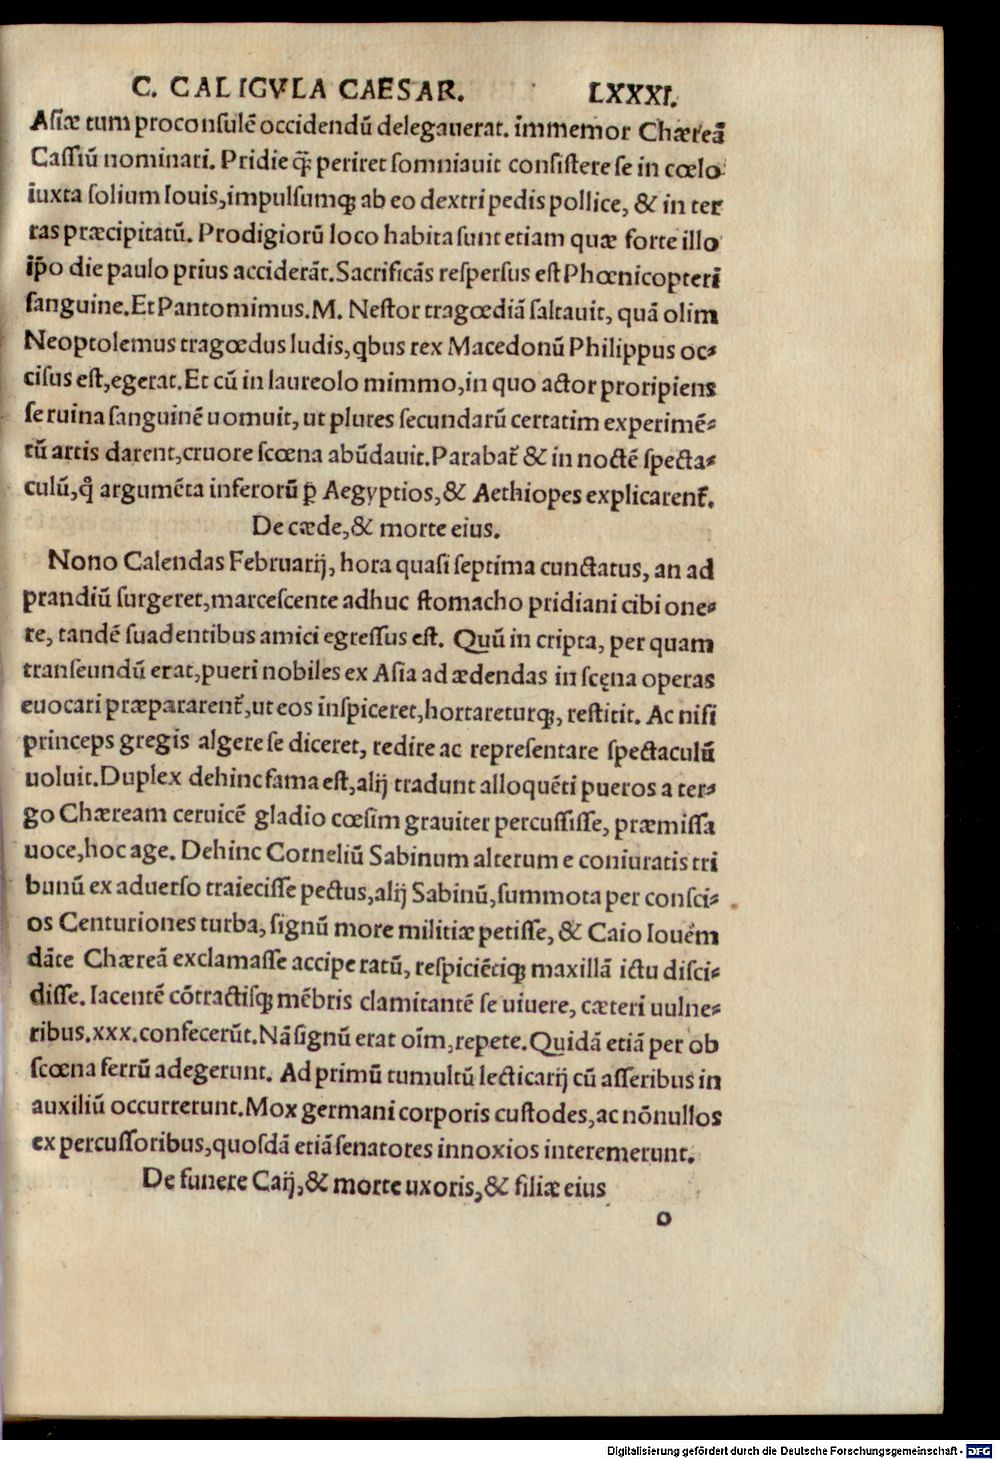 C. CALIGVLA CAESAR. LXXXI.
Asiæ tum proconsulē occidendū delegauerat. immemor Chæreā
Cassiū nominari. Pridie q̄ꝫ periret somniauit consistere se in cœlo
iuxta solium Iouis, impulsumqꝫ ab eo dextri pedis pollice, & in ter
ras præcipitatū. Prodigiorū loco habita sunt etiam quæ forte illo
ip̄o die paulo prius acciderāt. Sacrificās respersus est Phœnicopteri
sanguine. Et Pantomimus. M. Nestor tragœdiā saltauit, quā olim
Neoptolemus tragœdus ludis, qbus rex Macedonū Philippus oc⸗
cisus est, egerat. Et cū in laureolo mimmo, in quo actor proripiens
se ruina sanguinē uomuit, ut plures secundarū certatim experimē⸗
tū artis darent, cruore scœna abūdauit. Parabat᷑ & in noctē specta⸗
culū, q̊ argumēta inferorū p̄ Aegyptios, & Aethiopes explicarent᷑.
De cæde, & morte eius.
Nono Calendas Februarij, hora quasi septima cunctatus, an ad
prandiū surgeret, marcescente adhuc stomacho pridiani cibi one⸗
re, tandē suadentibus amici egressus est. Quū in cripta, per quam
transeundū erat, pueri nobiles ex Asia ad ædendas in scęna operas
euocari præpararent᷑, ut eos inspiceret, hortareturqꝫ, restitit. Ac nisi
princeps gregis algere se diceret, redire ac representare spectaculū
uoluit. Duplex dehinc fama est, alij tradunt alloquēti pueros a ter⸗
go Chæream ceruicē gladio cœsim grauiter percussisse, præmissa
uoce, hoc age. Dehinc Corneliū Sabinum alterum e coniuratis tri
bunū ex aduerso traiecisse pectus, alij Sabinū, summota per consci⸗
os Centuriones turba, signū more militiæ petisse, & Caio Iouem
dāte Chæreā exclamasse accipe ratū, respiciētiqꝫ maxillā ictu disci⸗
disse. Iacentē cōtractisqꝫ mēbris clamitantē se uiuere, cæteri uulne⸗
ribus. xxx. confecerūt. Nā signū erat oīm, repete. Quidā etiā per ob
scœna ferrū adegerunt. Ad primū tumultū lecticarij cū asseribus in
auxiliū occurrerunt. Mox germani corporis custodes, ac nōnullos
ex percussoribus, quosdā etiā senatores innoxios interemerunt.
De funere Caij, & morte uxoris, & filiæ eius
o
Digitalisierung gefördert durch die Deutsche Forschungsgemeinschaft - DFG